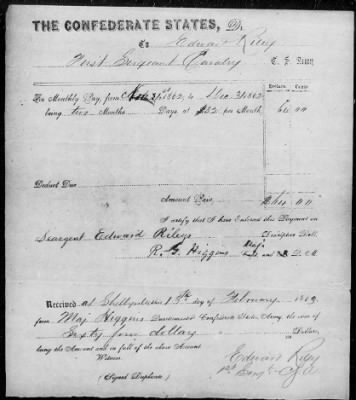 THE CONFEDERATE STATES, Dr.
To Edward Riley
First Sergeant Cavalry C. S. Army
Dollars. Cents.
For Monthly Pay, from 1862, to Dec 31 1862
being two Months Days at $32 per Month 64 00
Deduct Due
Amount Paid, $64 00
I certify that I have endorsed this Payment on
Seargent Edward Rileys Descriptive Roll,
R. G. Higgins Maj.
Received at Shelbyville 13th day of February 1863
from Maj Higgins Quartermaster Confederate States Army, the sum of
Sixty four dollars Dollars,
being the Amount and in full of the above Account
Witness
Edward Riley
(Signed Duplicate.) 1st Sergt C.S.A